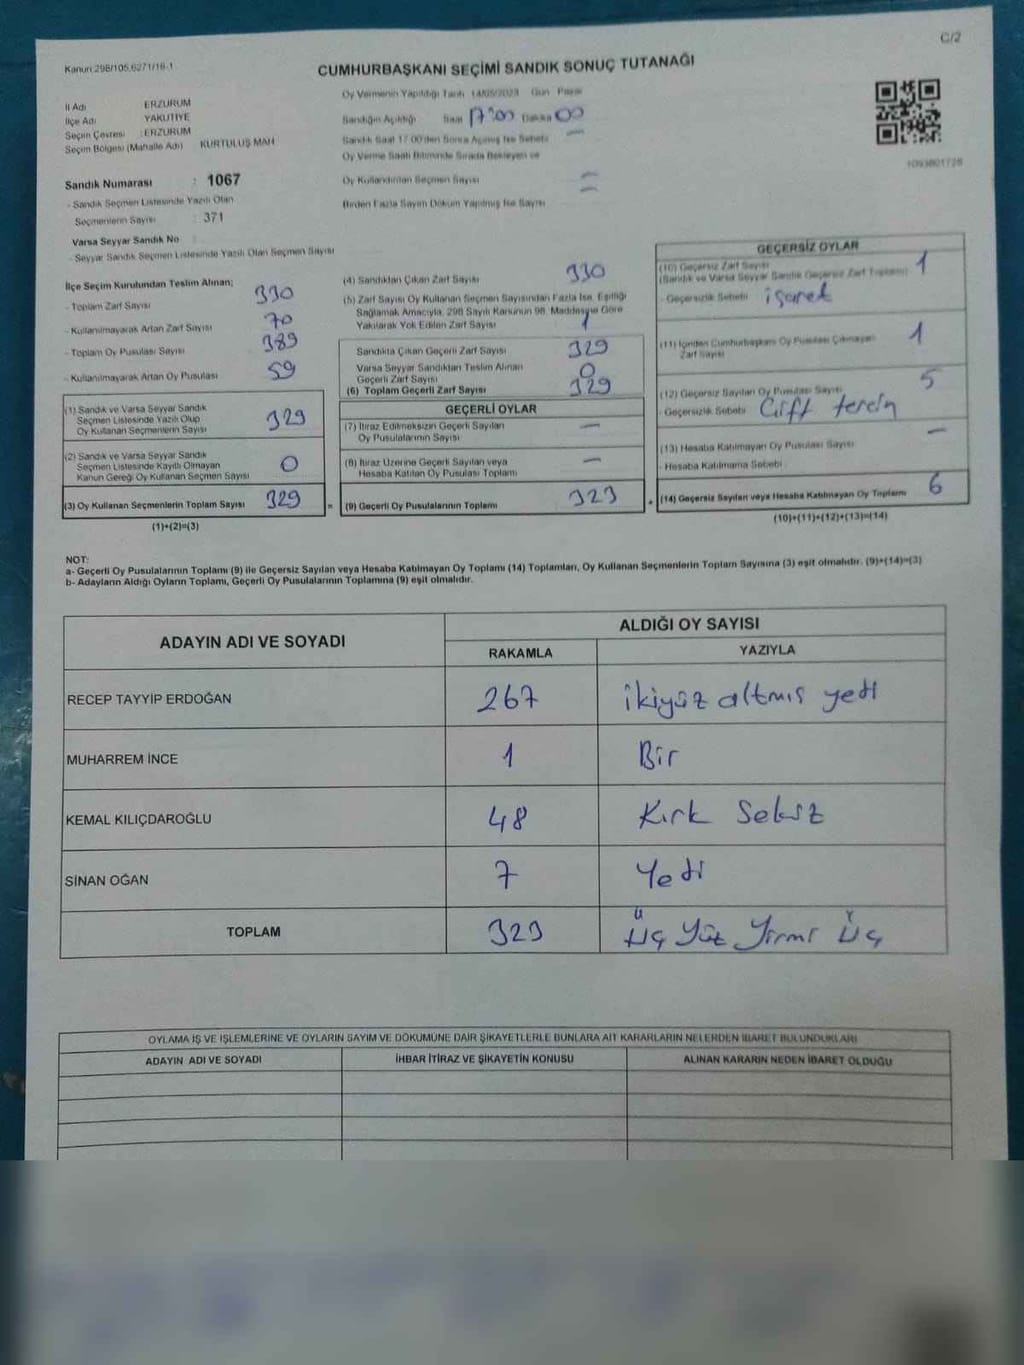 C/2
Kanun 298/105,6271/18-1
CUMHURBAŞKANI SEÇİMİ SANDIK SONUÇ TUTANAĞI
İl Adı ERZURUM
İlçe Adı YAKUTİYE
Seçim Çevresi : ERZURUM
Seçim Bölgesi (Mahalle Adı) KURTULUŞ MAH
Sandık Numarası : 1067
- Sandık Seçmen Listesinde Yazılı Olan
Seçmenlerin Sayısı : 371
Varsa Seyyar Sandık No
- Seyyar Sandık Seçmen Listesinde Yazılı Olan Seçmen Sayısı
Oy Vermenin Yapıldığı Tarih 14/05/2023 Gün Pazar
Sandığın Açıldığı Saat 17:00 Dakika 00
Sandık Saat 17.00'den Sonra Açılmış İse Sebebi —
Oy Verme Saati Bitiminde Sırada Bekleyen ve
Oy Kullandırılan Seçmen Sayısı =
Birden Fazla Sayım Döküm Yapılmış İse Sayısı
1093801728
İlçe Seçim Kurulundan Teslim Alınan;
- Toplam Zarf Sayısı 330
- Kullanılmayarak Artan Zarf Sayısı 70
- Toplam Oy Pusulası Sayısı 389
- Kullanılmayarak Artan Oy Pusulası 59
(1) Sandık ve Varsa Seyyar Sandık
Seçmen Listesinde Yazılı Olup
Oy Kullanan Seçmenlerin Sayısı 329
(2) Sandık ve Varsa Seyyar Sandık
Seçmen Listesinde Kayıtlı Olmayan
Kanun Gereği Oy Kullanan Seçmen Sayısı 0
(3) Oy Kullanan Seçmenlerin Toplam Sayısı 329 =
(1)+(2)=(3)
(4) Sandıktan Çıkan Zarf Sayısı 330
(5) Zarf Sayısı Oy Kullanan Seçmen Sayısından Fazla İse, Eşitliği
Sağlamak Amacıyla, 298 Sayılı Kanunun 98. Maddesine Göre
Yakılarak Yok Edilen Zarf Sayısı 1
Sandıkta Çıkan Geçerli Zarf Sayısı 329
Varsa Seyyar Sandıktan Teslim Alınan
Geçerli Zarf Sayısı 0
(6) Toplam Geçerli Zarf Sayısı 329
GEÇERLİ OYLAR
(7) İtiraz Edilmeksizin Geçerli Sayılan
Oy Pusulalarının Sayısı —
(8) İtiraz Üzerine Geçerli Sayılan veya
Hesaba Katılan Oy Pusulası Toplamı —
(9) Geçerli Oy Pusulalarının Toplamı 323 +
GEÇERSİZ OYLAR
(10) Geçersiz Zarf Sayısı
(Sandık ve Varsa Seyyar Sandık Geçersiz Zarf Toplamı) 1
- Geçersizlik Sebebi işaret
(11) İçinden Cumhurbaşkanı Oy Pusulası Çıkmayan
Zarf Sayısı 1
(12) Geçersiz Sayılan Oy Pusulası Sayısı 5
- Geçersizlik Sebebi Çift tercih
(13) Hesaba Katılmayan Oy Pusulası Sayısı —
- Hesaba Katılmama Sebebi
(14) Geçersiz Sayılan veya Hesaba Katılmayan Oy Toplamı 6
(10)+(11)+(12)+(13)=(14)
NOT:
a- Geçerli Oy Pusulalarının Toplamı (9) ile Geçersiz Sayılan veya Hesaba Katılmayan Oy Toplamı (14) Toplamları, Oy Kullanan Seçmenlerin Toplam Sayısına (3) eşit olmalıdır. (9)+(14)=(3)
b- Adayların Aldığı Oyların Toplamı, Geçerli Oy Pusulalarının Toplamına (9) eşit olmalıdır.
ADAYIN ADI VE SOYADI ALDIĞI OY SAYISI
RAKAMLA YAZIYLA
RECEP TAYYİP ERDOĞAN 267 ikiyüz altmış yedi
MUHARREM İNCE 1 Bir
KEMAL KILIÇDAROĞLU 48 Kırk Sekiz
SİNAN OĞAN 7 Yedi
TOPLAM 323 Üç Yüz Yirmi Üç
OYLAMA İŞ VE İŞLEMLERİNE VE OYLARIN SAYIM VE DÖKÜMÜNE DAİR ŞİKAYETLERLE BUNLARA AİT KARARLARIN NELERDEN İBARET BULUNDUKLARI
ADAYIN ADI VE SOYADI İHBAR İTİRAZ VE ŞİKAYETİN KONUSU ALINAN KARARIN NEDEN İBARET OLDUĞU